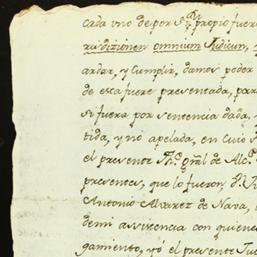 cada uno de por Sy propio fuero
rudizionen omnium Iudicun, y
ardar, y Cumplir, damos poder
de esta fuere presentada, para
si fuera por sentencia dada, y
tida, y nó apelada, en Cuio
el presente Thê. gral de Alc.
presentes, que lo fueron, Dn.
Antonio Alvarez de Nava,
demi assistencia con quienes
gamiento, yó el presente Jue